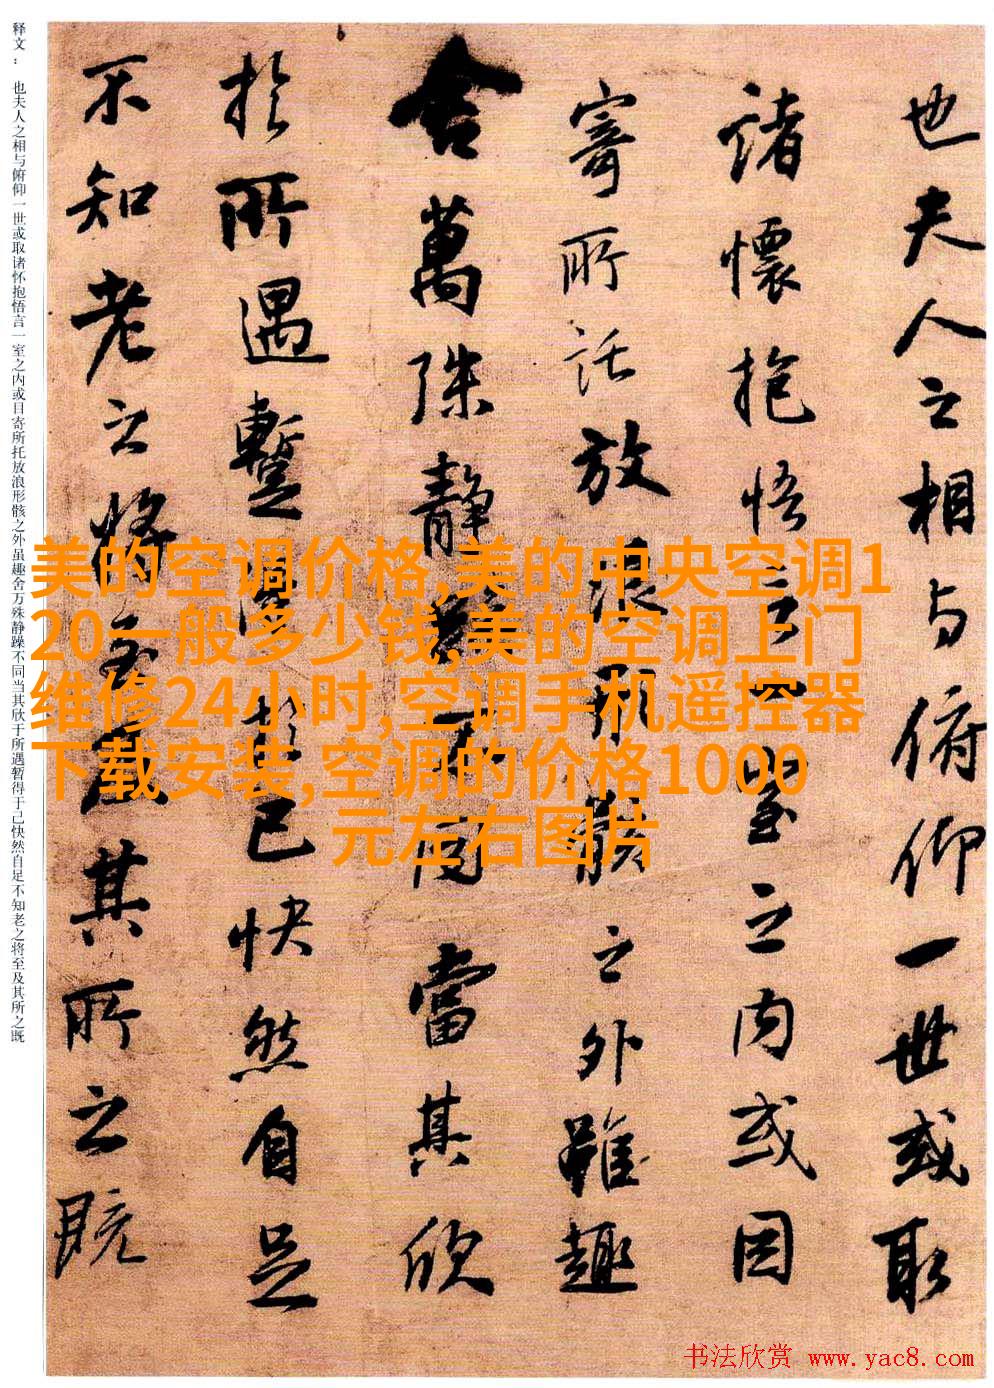 也夫人之相与俯仰一世或取
諸懷抱悟言一室之内或因
寄所託放浪形骸之外雖趣
舍萬殊靜躁不同當其欣
於所遇蹔得於己快然自足
不知老之將至及其所之既
释文：也夫人之相与俯仰一世或取诸怀抱悟言一室之内或目寄所托放浪形骸之外虽趣舍万殊静躁不同当其欣于所遇暂得于己快然自足不知老之将至及其所之既
美的空调价格,美的中央空调1
20一般多少钱,美的空调上门
维修24小时,空调手机遥控器
下载安装,空调的价格1000
元左右图片
书法欣赏 www.yac8.com